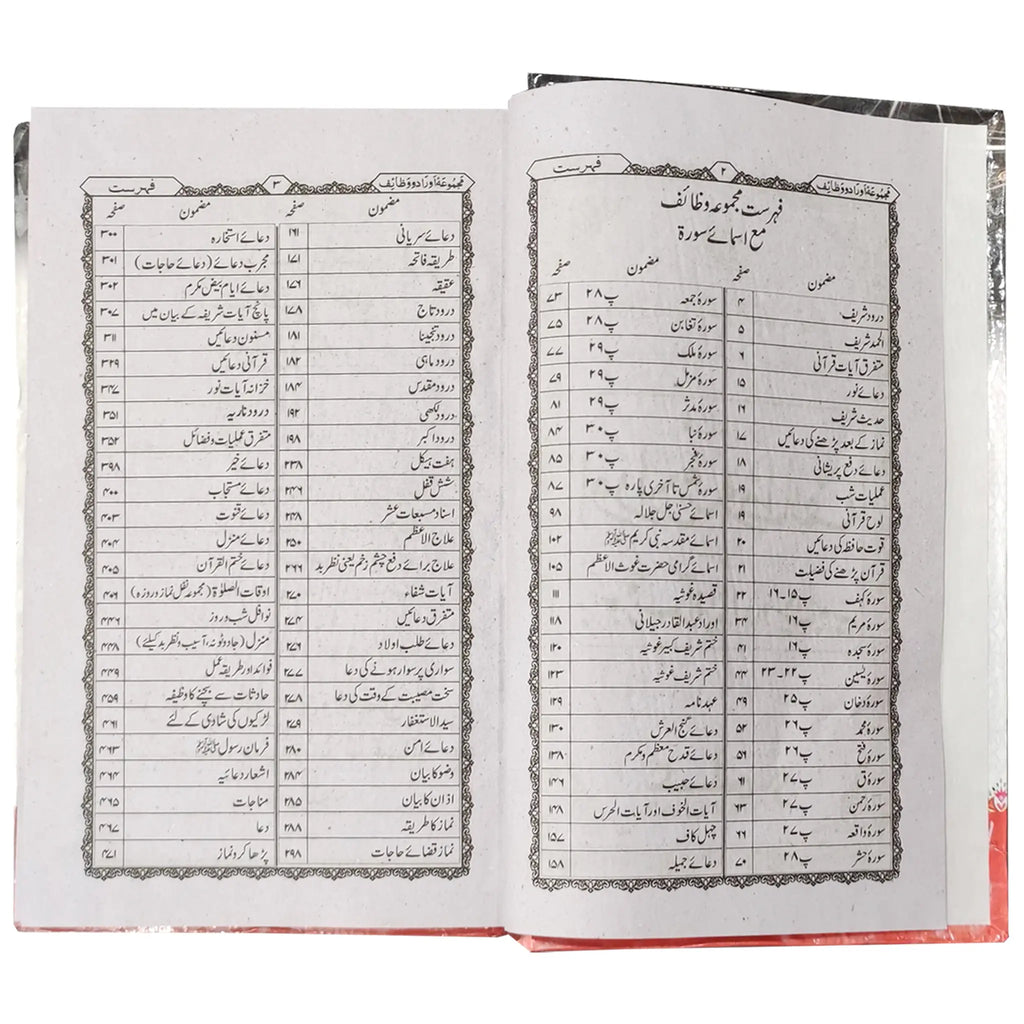 مجموعۂ اَوراد و وظائف ۲ فہرست
فہرست مجموعہ وظائف
مع اسمائے سورۃ
مضمون صفحہ
درود شریف ۴
الحمد شریف ۵
متفرق آیات قرآنی ۶
دعائے نور ۱۵
حدیث شریف ۱۶
نماز کے بعد پڑھنے کی دعائیں ۱۷
دعائے دفع پریشانی ۱۸
عملیات شب ۱۹
لوح قرآنی ۱۹
قوت حافظہ کی دعائیں ۲۰
قرآن پڑھنے کی فضیلت ۲۱
سورۂ کہف پ۱۵-۱۶ ۲۲
سورۂ مریم پ۱۶ ۳۴
سورۂ سجدہ پ ۴۱
سورۂ یٰسین پ۲۲-۲۳ ۴۴
سورۂ دخان پ۲۵ ۴۹
سورۂ محمد پ۲۶ ۵۲
سورۂ فتح پ۲۶ ۵۶
سورۂ ق پ۲۷ ۶۱
سورۂ رحمن پ۲۷ ۶۳
سورۂ واقعہ پ۲۷ ۶۶
سورۂ حشر پ۲۸ ۷۰
مضمون صفحہ
سورۂ جمعہ پ۲۸ ۷۳
سورۂ تغابن پ۲۸ ۷۵
سورۂ ملک پ۲۹ ۷۷
سورۂ مزمل پ۲۹ ۷۹
سورۂ مدثر پ۲۹ ۸۱
سورۂ نبا پ۳۰ ۸۴
سورۂ فجر پ۳۰ ۸۵
سورۂ شمس تا آخری پارہ پ۳۰ ۸۷
اسمائے حسنیٰ جل جلالہ ۹۸
اسمائے مقدسہ نبی کریم ﷺ ۱۰۲
اسمائے گرامی حضرت غوث الاعظم ۱۰۵
قصیدہ غوثیہ ۱۱۱
اوراد عبدالقادر جیلانی ۱۱۸
ختم شریف کبیر غوثیہ ۱۲۰
ختم شریف غوثیہ ۱۲۳
عہد نامہ ۱۲۹
دعائے گنج العرش ۱۳۰
دعائے قدح معظم و مکرم ۱۳۸
دعائے حبیب ۱۴۶
آیات الخوف اور آیات الحرس ۱۴۸
چہل کاف ۱۵۷
دعائے جمیلہ ۱۵۸
مجموعۂ اَوراد و وظائف ۳ فہرست
مضمون صفحہ
دعائے سریانی ۱۶۱
طریقہ فاتحہ ۱۷۱
عقیقہ ۱۷۶
درود تاج ۱۷۸
درود تنجینا ۱۸۱
درود ماہی ۱۸۲
درود مقدس ۱۸۴
درود لکھی ۱۹۲
درود اکبر ۱۹۸
ہفت ہیکل ۲۳۸
شش قفل ۲۴۶
اسناد مسبعات عشر ۲۴۸
علاج الاعظم ۲۵۰
علاج برائے دفع چشم زخم یعنی نظر بد ۲۶۶
آیات شفاء ۲۷۰
متفرق دعائیں ۲۷۴
دعائے طلب اولاد ۲۷۶
سواری پر سوار ہونے کی دعا ۲۷۷
سخت مصیبت کے وقت کی دعا ۲۷۸
سید الاستغفار ۲۷۹
دعائے امن ۲۸۰
وضو کا بیان ۲۸۴
اذان کا بیان ۲۸۵
نماز کا طریقہ ۲۸۸
نماز قضائے حاجات ۲۹۸
مضمون صفحہ
دعائے استخارہ ۳۰۰
مجرب دعائے (دعائے حاجات) ۳۰۱
دعائے ایام بیض مکرم ۳۰۲
پانچ آیات شریفہ کے بیان میں ۳۰۷
مسنون دعائیں ۳۱۱
قرآنی دعائیں ۳۲۹
خزانہ آیات نور ۳۴۷
درود ناریہ ۳۵۱
متفرق عملیات و فضائل ۳۵۲
دعائے خیر ۳۹۸
دعائے مستجاب ۴۰۰
دعائے قنوت ۴۰۳
دعائے منزل ۴۰۴
دعائے ختم القرآن ۴۰۵
اوقات الصلوٰۃ (مجموعہ نفل نماز و روزہ) ۴۰۶
نوافل شب و روز ۴۴۶
منزل (جادو ٹونہ، آسیب و نظر بد کیلئے) ۴۴۸
فوائد اور طریقہ عمل ۴۴۹
حادثات سے بچنے کا وظیفہ ۴۵۹
لڑکیوں کی شادی کے لئے ۴۶۱
فرمان رسول ﷺ ۴۶۳
اشعار دعائیہ ۴۶۴
مناجات ۴۶۵
دعا ۴۶۷
پڑھا کرو نماز ۴۷۱